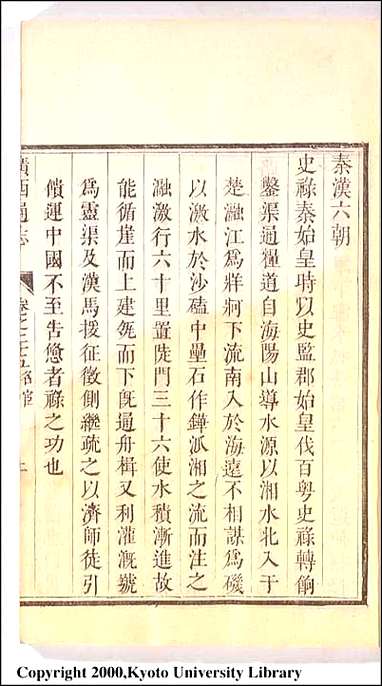 秦漢六朝
史祿秦始皇時以史監郡始皇伐百粤史祿轉餉
鑿渠通糧道自海陽山導水源以湘水北入于
楚瀜江爲牂牁下流南入於海遠不相謀爲磯
以激水於沙磕中壘石作鏵派湘之流而注之
瀜激行六十里置陡門三十六使水積漸進故
能循崖而上建瓴而下旣通舟楫又利灌漑號
爲靈渠及漢馬援征徵側繼疏之以濟師徒引
饋運中國不至告憊者祿之功也
廣西通志
Copyright 2000,Kyoto University Library